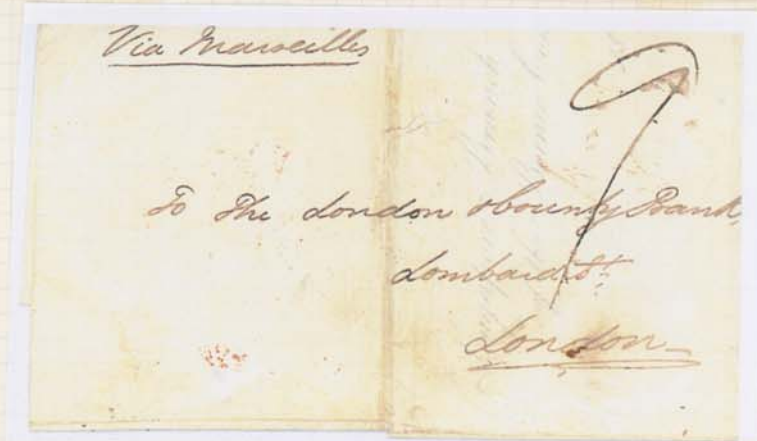 Via Marseilles
9
To The London & County Bank,
Lombard St.
London